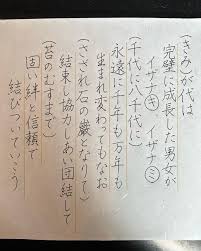 (きみ)が代は
完璧に成長した男女が
イザナ㋖ イザナ㋯
(千代に八千代に)
永遠に千年も万年も
生まれ変わってもなお
(さざれ石の巌となりて)
結束し協力しあい団結して
(苔のむすまで)
固い絆と信頼で
結びついていこう